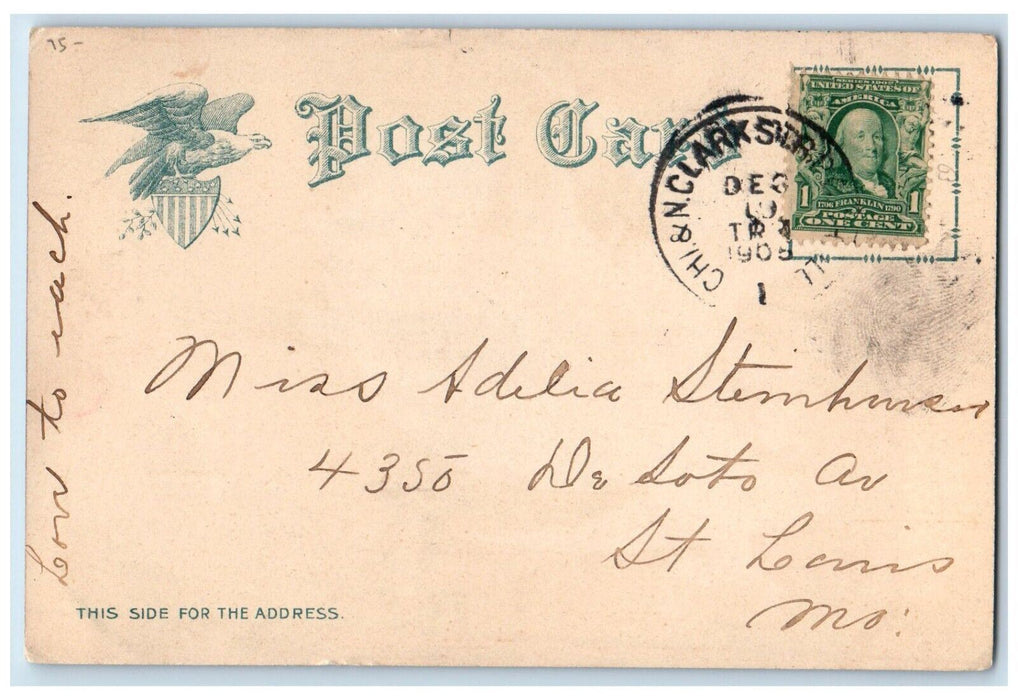 75-
Post Card
SERIES 1902
UNITED STATES OF
AMERICA
1706 FRANKLIN 1790
1 POSTAGE 1
ONE CENT
CHI. & N. CLARK ST. R.P.
DEC
TR
190
1
Love to each.
Miss Adelia
4350 De Soto Av
St Louis
Mo.
THIS SIDE FOR THE ADDRESS.